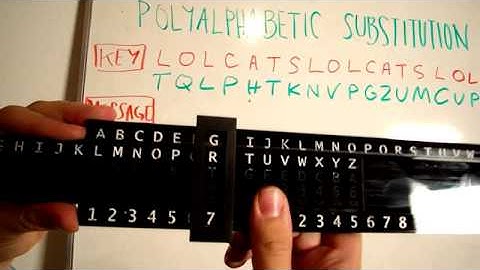 POLYALPHABETIC SUBSTITUTION
KEY LOLCATSLOLCATSLOL
TQLPHTKNVPGZUMCUP
MESSAGE
ABCDE G IJKLMNOPQRSTUVW
EHIJKLMNOP R TUVWXYZ
12345 7 2345678